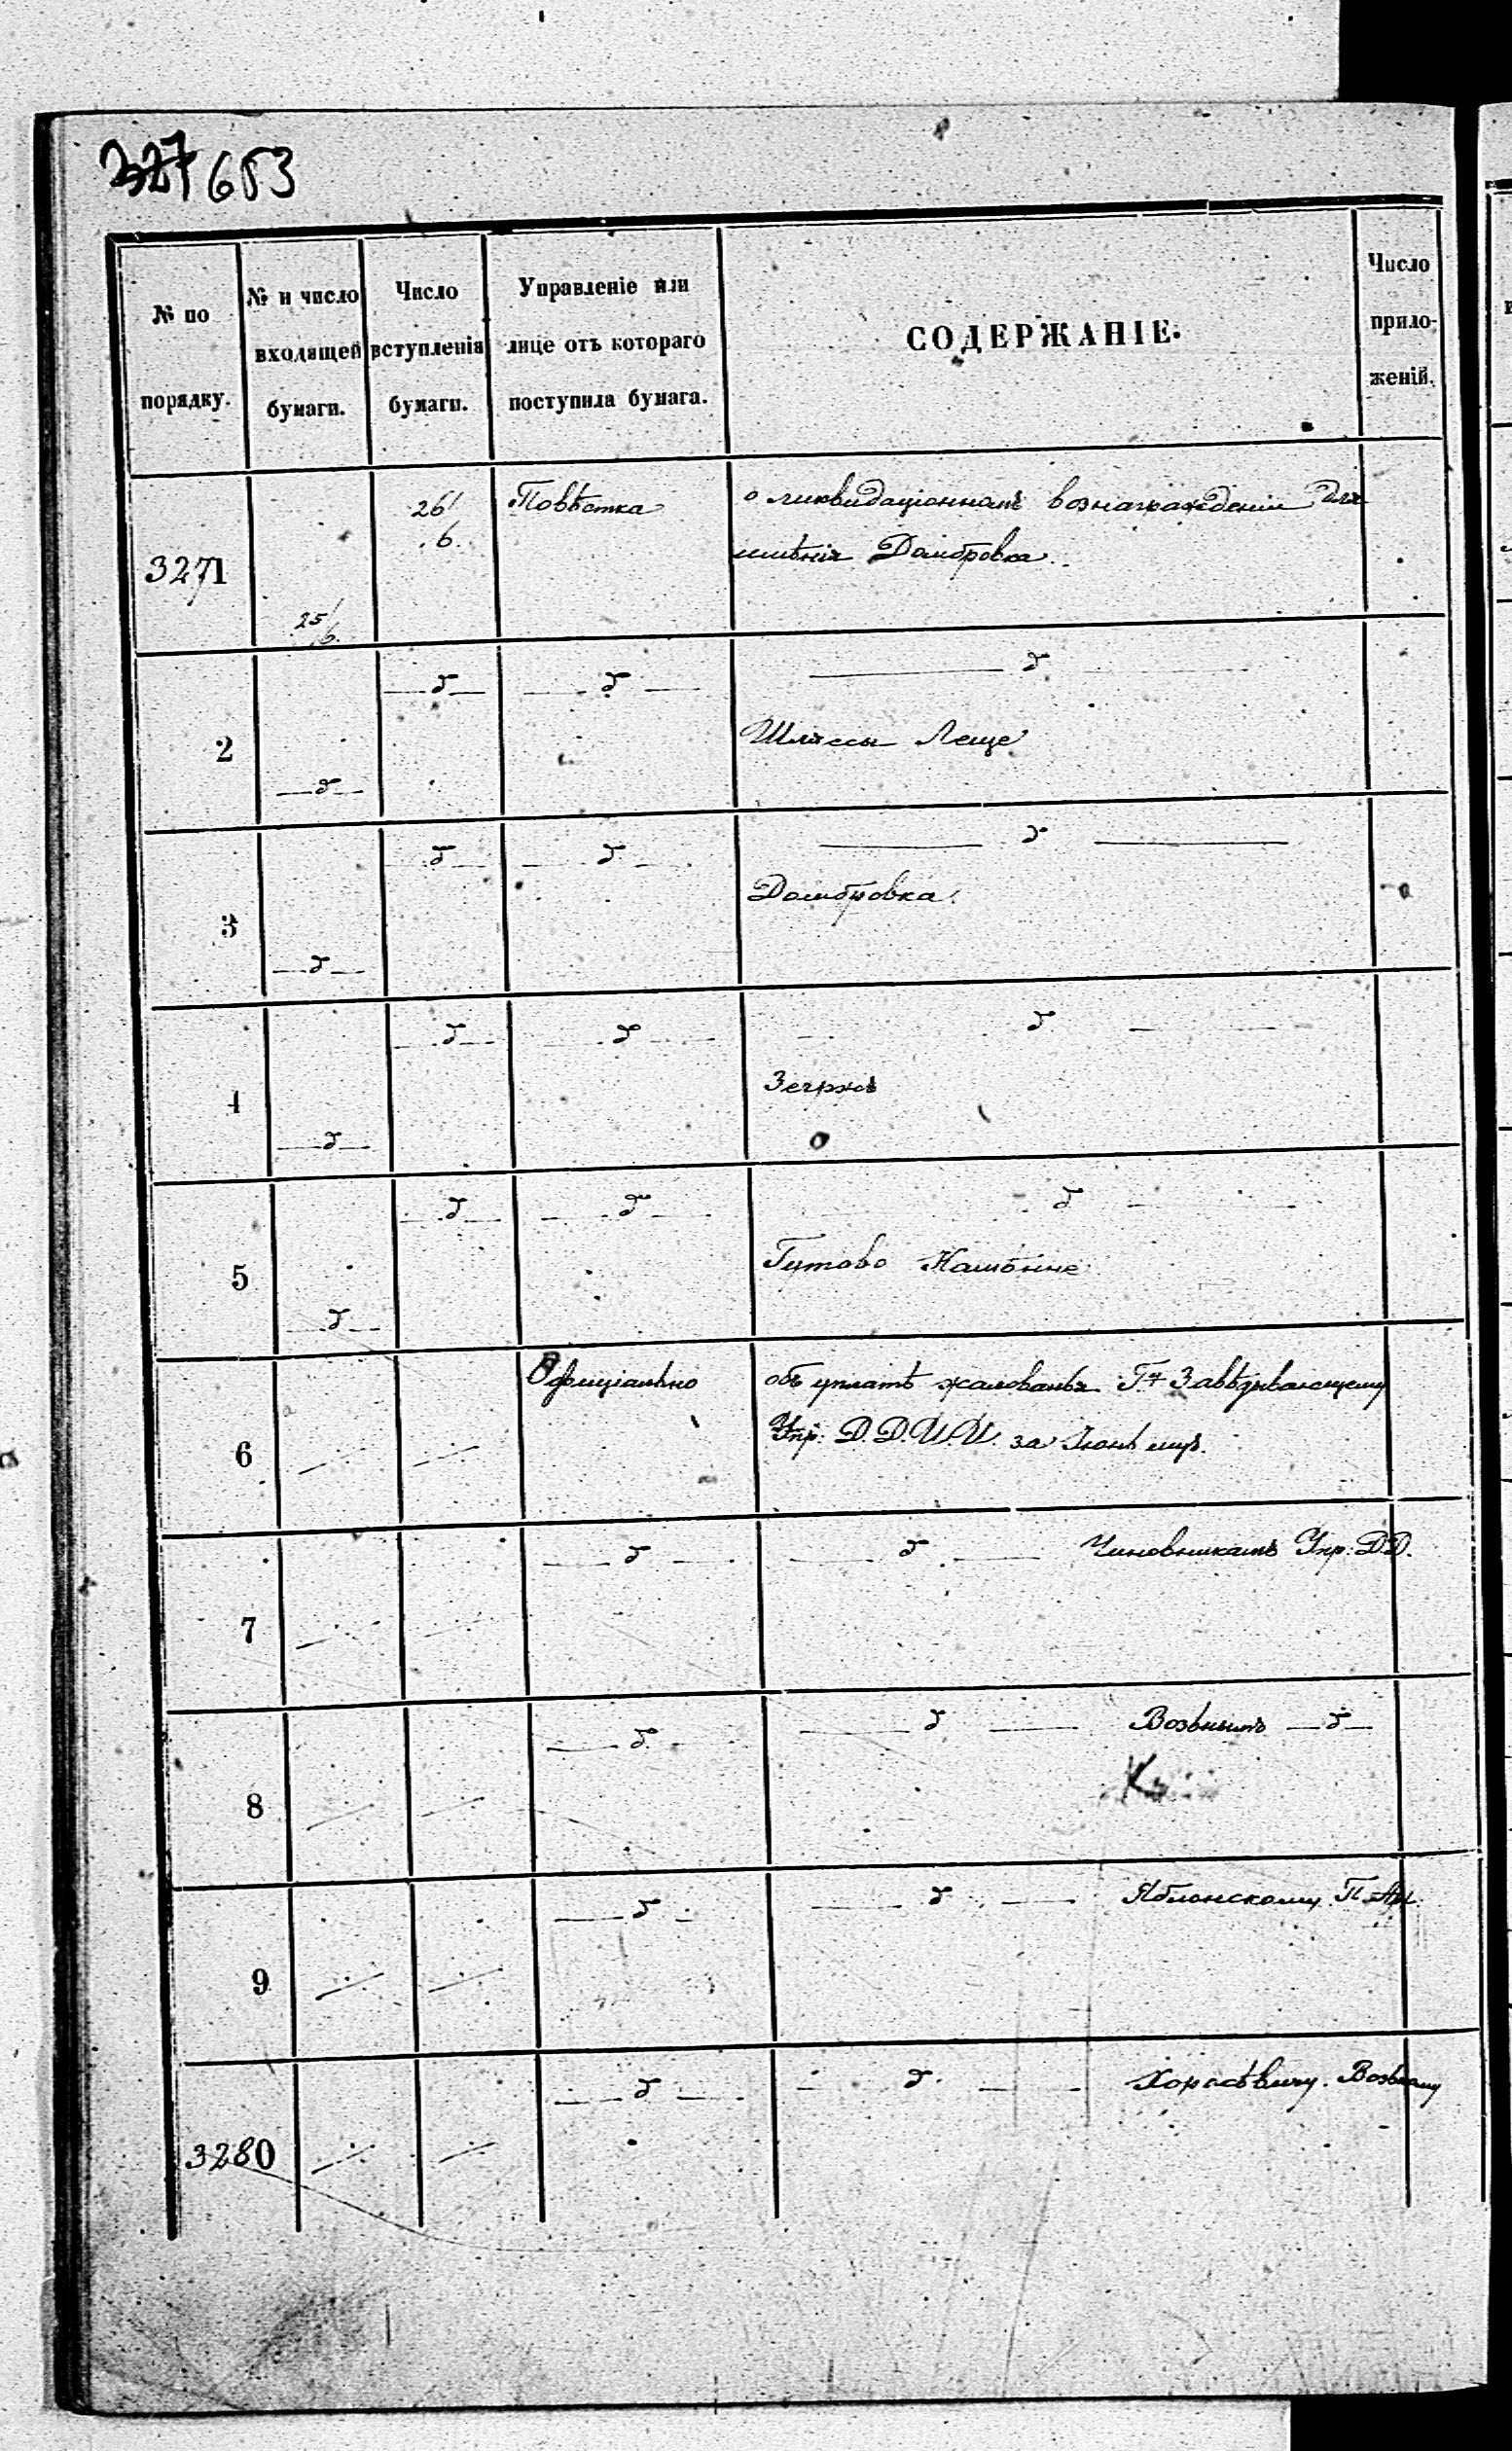 327 653
№ по порядку.
№ и число входящей бумаги.
Число вступленія бумаги.
Управленіе или лице отъ котораго поступила бумага.
СОДЕРЖАНІЕ.
Число прило-женій.
3271 25/6. 26/6. Повѣстка о ликвидаціонномъ вознагражденіи для
имѣнія Домбровка.
2
Леще
3
Домбровка.
4
Зегржъ
5
Гутово
6 Офиціально объ уплатѣ жалованья Г. Завѣдывающему
Упр: Д.Д.И.И. за Іюнь мцъ.
7 Чиновникамъ Упр: Д.Д.
8 Вознымъ
9 Яблонскому
3280 Возному